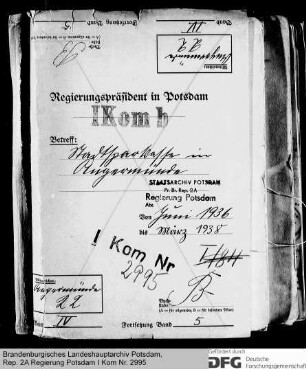 Regierungspräsident in Potsdam
I Kom b
Betreff:
Stadtsparkasse in
Angermünde
STAATSARCHIV POTSDAM
Pr. Br. Rep. 2A
Regierung Potsdam
Von Juni 1936
bis März 1938
I Kom Nr
2995
Angermünde
22
IV
Fortsetzung Band 5
Brandenburgisches Landeshauptarchiv Potsdam,
Rep. 2A Regierung Potsdam I Kom Nr. 2995
Gefördert durch
DFG Deutsche
Forschungsgemeinschaft